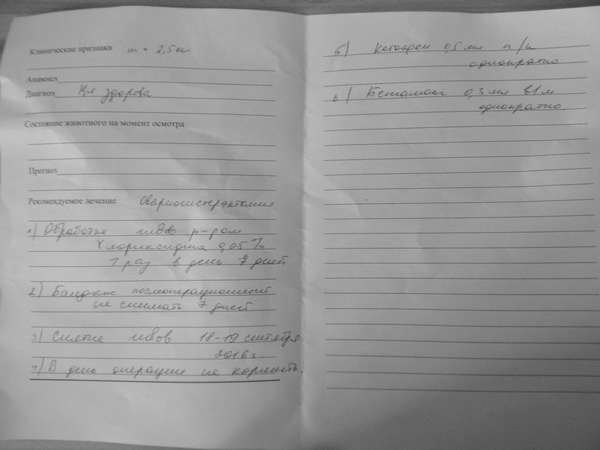 Клинические признаки m = 2,5 кг
Анамнез
Диагноз Кл здорова
Состояние животного на момент осмотра
Прогноз
Рекомендуемое лечение Овариогистерэктомия
1) Обработка швов р-ром
Хлоргексидина 0,05 %
1 раз в день 7 дней
2) Бандаж послеоперационный
не снимать 7 дней
3) Снятие швов 18-19 сентября
2016 г
4) В день операции не кормить.
5) 0,5 мл п/к
однократно
6) 0,3 мл в/м
однократно